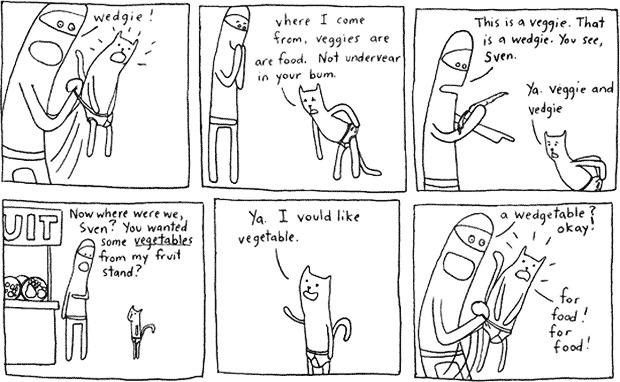 wedgie!
vhere I come
from, veggies are
are food. Not undervear
in your bum.
This is a veggie. That
is a wedgie. You see,
Sven.
Ya. veggie and
vedgie
UIT
Now where were we,
Sven? You wanted
some vegetables
from my fruit
stand?
Ya. I vould like
vegetable.
a wedgetable?
okay!
for
food!
for
food!